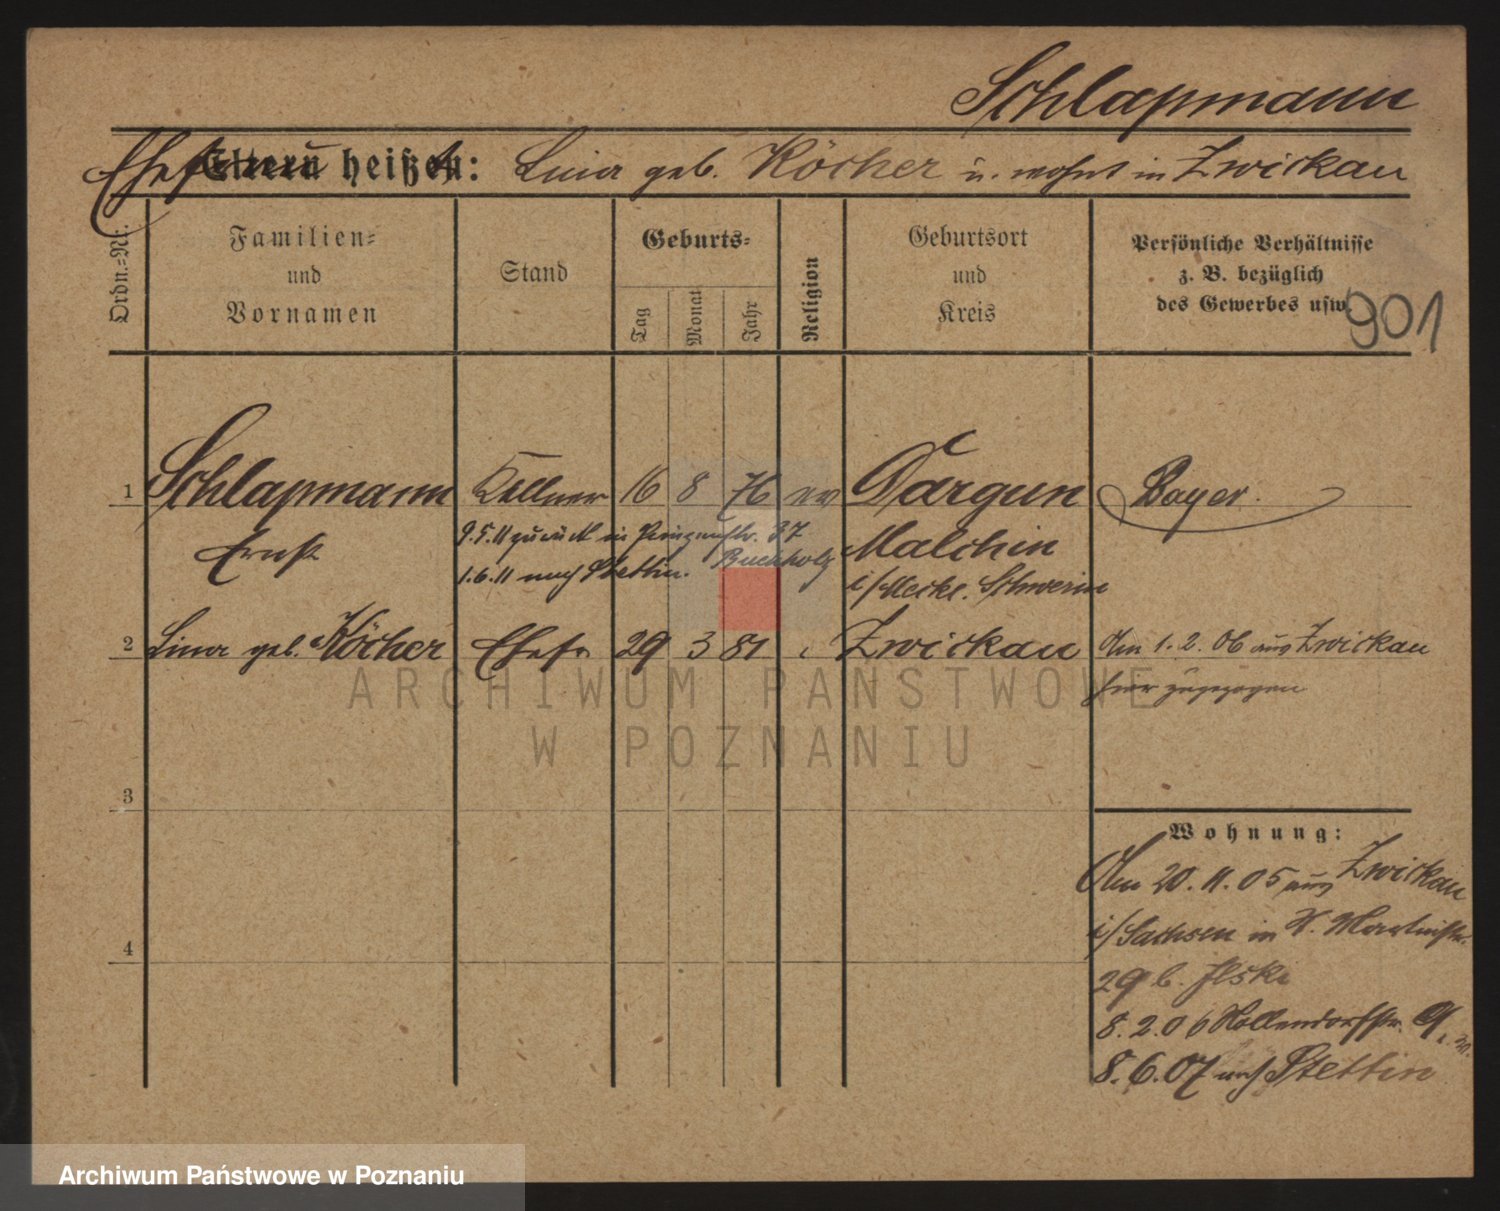 Schlapmann
Ehefrau heißt: Lina geb. Köcher u. wohnt in Zwickau
Ordn.-Nr.
Familien-
und
Vornamen
Stand
Geburts-
Tag
Monat
Jahr
Religion
Geburtsort
und
Kreis
Persönliche Verhältnisse
z. B. bezüglich
des Gewerbes usw.
901
1 Schlapmann Kellner 16 8 76 ev Dargun Bayer.
Ernst
9.5.11 zurück in 37 Buchholz
1.6.11 nach Stettin.
Malchin
i/Meckl. Schwerin
2 Lina geb. Köcher Ehefr 29 3 81 Zwickau Am 1. 2. 06 aus Zwickau
hier zugezogen
3
4
Wohnung:
Am 20. 11. 05 aus Zwickau
i/Sachsen in St. Martinstr.
29 b. Ilski
8. 2. 06 Hollendorfstr. 9
8. 6. 07 nach Stettin
ARCHIWUM PAŃSTWOWE
W POZNANIU
Archiwum Państwowe w Poznaniu